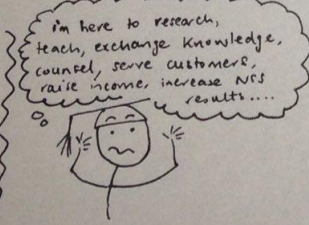 i'm here to research,
teach, exchange knowledge,
counsel, serve customers,
raise income, increase NSS
results....